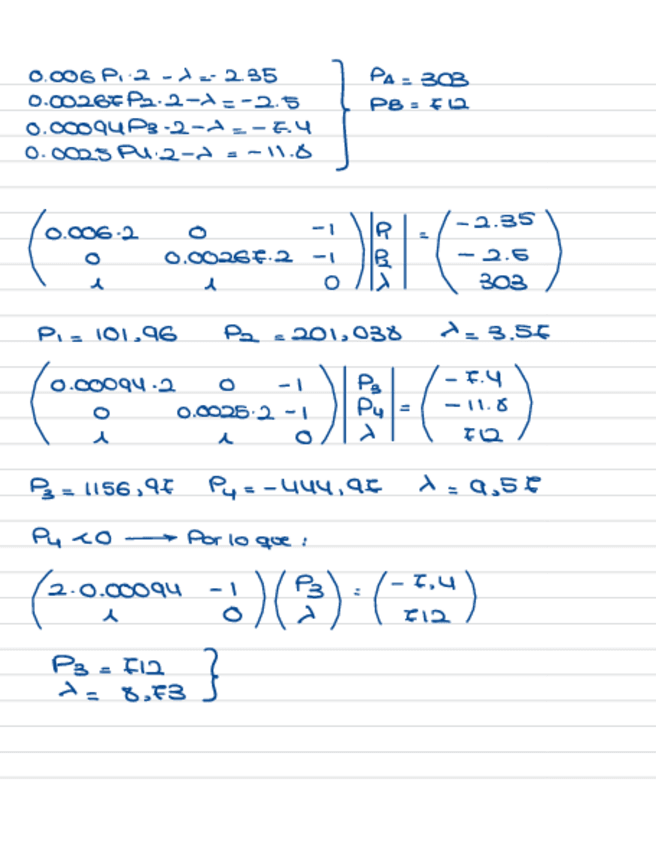 0.006 P1·2 - λ = - 2.35
0.00267 P2·2 - λ = -2.5
0.00094 P3·2 - λ = -7.4
0.0025 P4·2 - λ = -11.8
PA = 303
PB = 712
0.006·2 0 -1 P1 = -2.35
0 0.00267·2 -1 P2 -2.5
1 1 0 λ 303
P1 = 101,96 P2 = 201,038 λ = 3.57
0.00094·2 0 -1 P3 -7.4
0 0.0025·2 -1 P4 = -11.8
1 1 0 λ 712
P3 = 1156,97 P4 = -444,97 λ = 9,57
P4 < 0 → Por lo que:
2·0.00094 -1 P3 = -7,4
1 0 λ 712
P3 = 712
λ = 8,73